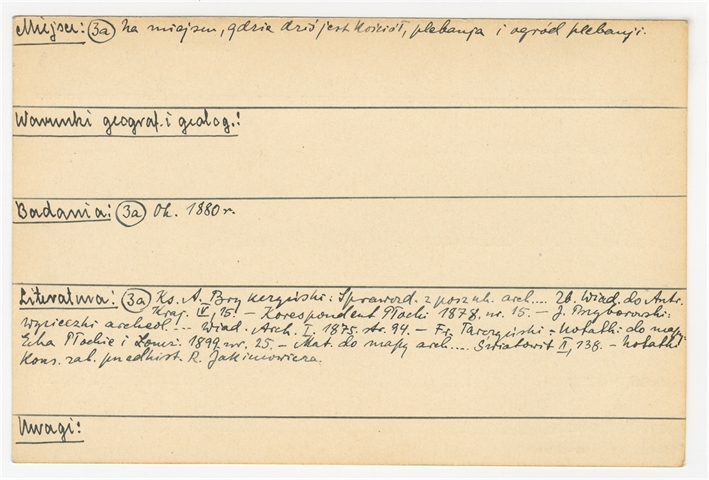 Miejsce: (3a) Na miejscu, gdzie dziś jest kościół, plebanja i ogród plebanji.
Warunki geograf. i geolog.:
Badania: (3a) Ok. 1880 r.
Literatura: (3a) Ks. A. Brykczyński: Sprawozd. z poszuk. arch.... Zb. Wiad. do Antr.
Kraj. IV, 15. – Korespondent Płocki 1878, nr. 15. – J. Przyborowski:
Wycieczki archeol.... Wiad. Arch. I. 1875. str. 94. – Fr. Tarczyński: Notatki do mapy
Echa Płockie i Łomż. 1899 nr. 25. – Mat. do mapy arch.... Światowit II, 138. – Notatki
Kons. zab. przedhist. R. Jakimowicza.
Uwagi: